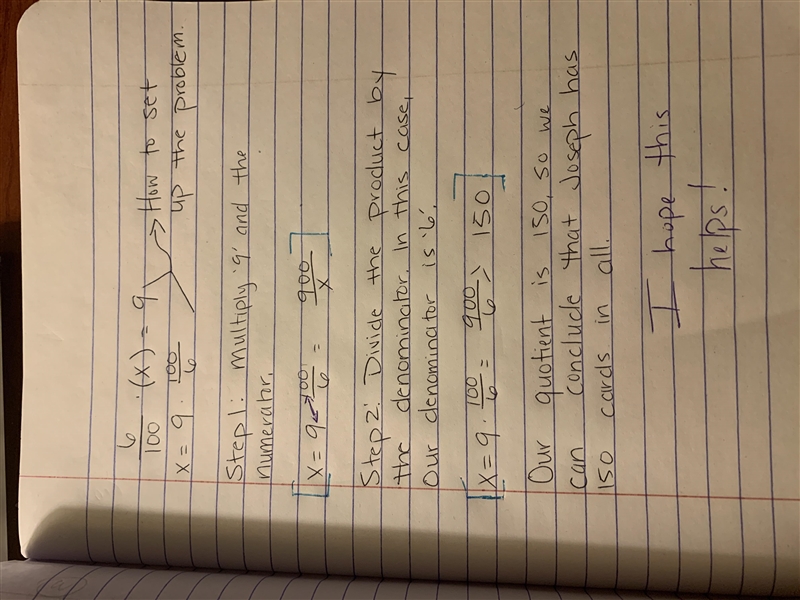 6/100 · (x) = 9 → How to set
x = 9 · 100/6 up the problem.
Step 1: Multiply '9' and the
numerator.
[x = 9 ↔ 100/6 = 900/x]
Step 2: Divide the product by
the denominator. In this case,
our denominator is '6'.
[x = 9 · 100/6 = 900/6 > 150]
Our quotient is 150, so we
can conclude that Joseph has
150 cards in all.
I hope this
helps!